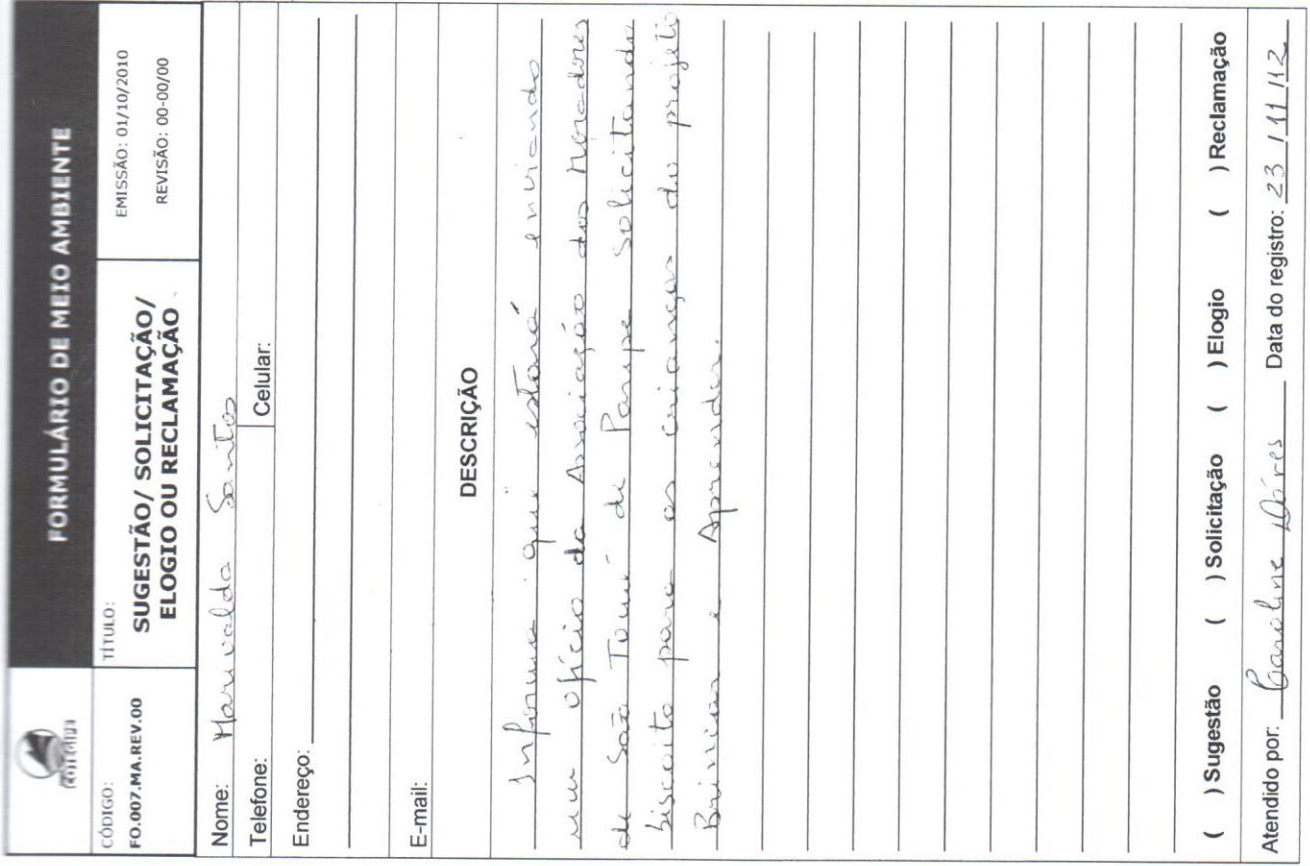 FORMULÁRIO DE MEIO AMBIENTE
CÓDIGO:
FO.007.MA.REV.00
TÍTULO:
SUGESTÃO/ SOLICITAÇÃO/
ELOGIO OU RECLAMAÇÃO
EMISSÃO: 01/10/2010
REVISÃO: 00-00/00
Nome: Marivalda Santos
Telefone: Celular:
Endereço:
E-mail:
DESCRIÇÃO
Informa que estará enviando
um ofício da Associação dos Moradores
de São Tomé de Paripe solicitando
biscoito para as crianças do projeto
Brincar e Aprender.
( ) Sugestão ( ) Solicitação ( ) Elogio ( ) Reclamação
Atendido por: Caroline Dóres Data do registro: 23/11/12